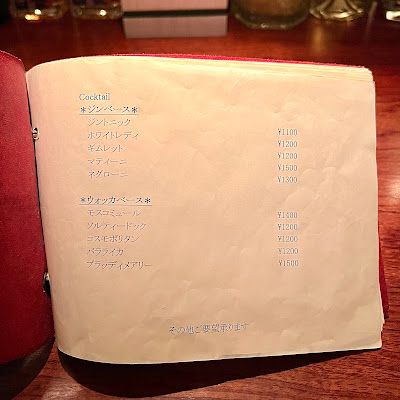 Cocktail
*ジンベース*
ジントニック ¥1100
ホワイトレディ ¥1200
ギムレット ¥1200
マティーニ ¥1500
ネグローニ ¥1300
*ウォッカベース*
モスコミュール ¥1400
ソルティードック ¥1200
コスモポリタン ¥1200
バラライカ ¥1200
ブラッディメアリー ¥1500
その他ご要望承ります